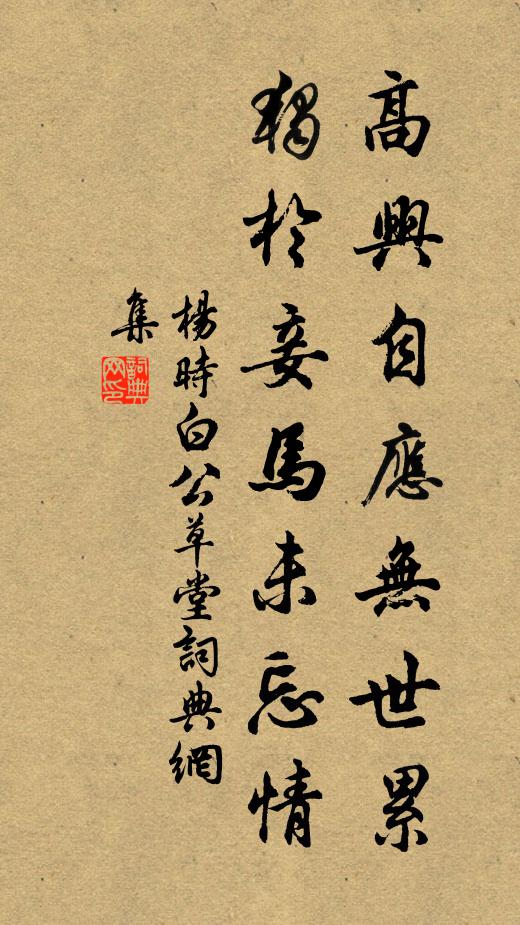 高興自應無世累
獨於妾馬未忘情
楊時白公草堂詞典網
集
詞典網印